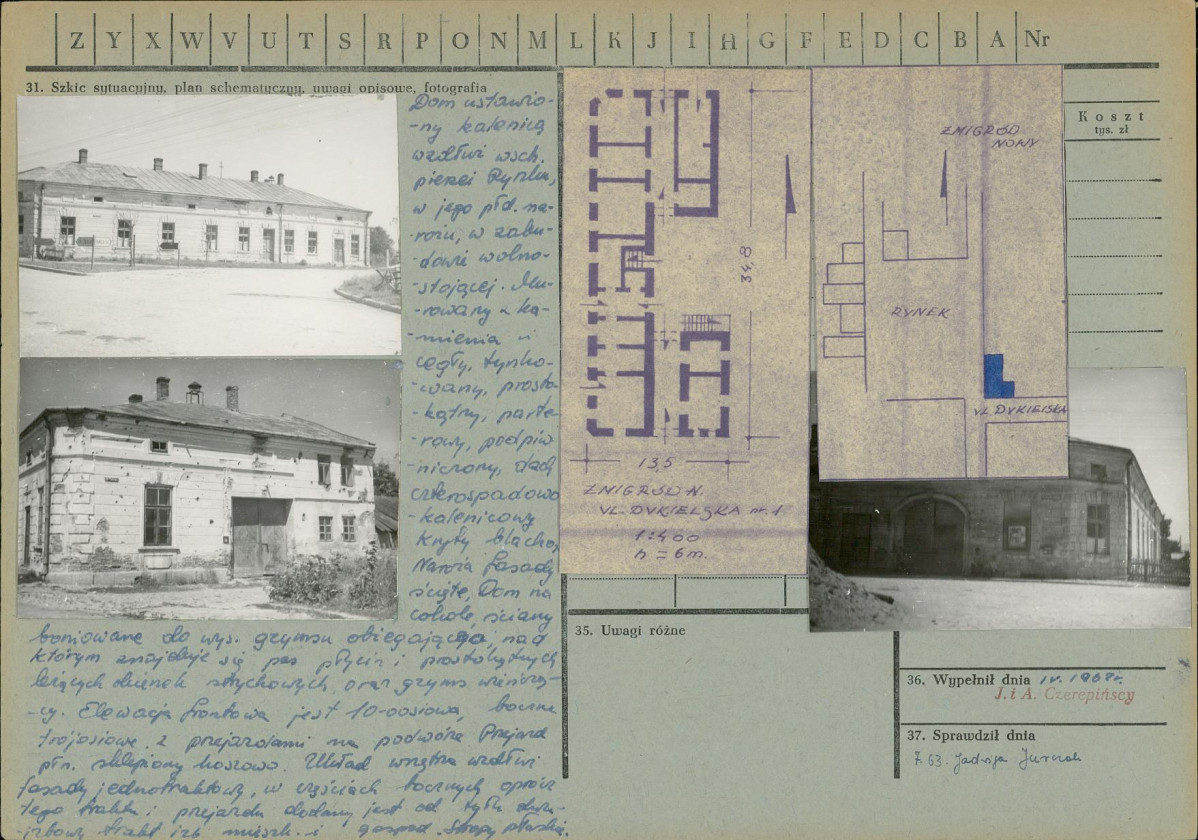 Z Y X W V U T S R P O N M L K J I H G F E D C B A Nr
31. Szkic sytuacyjny, plan schematyczny, uwagi opisowe, fotografia
Dom ustawio-
-ny kalenicą
wzdłuż wsch.
pierzei Rynku,
w jego płd. na-
-rożu, w zabu-
-dowie wolno-
-stojącej. Mu-
-rowany z ka-
-mienia i
cegły, tynko-
-wany, prosto-
-kątny, parte-
-rowy, podpiw-
-niczony, dach
czterospadowo
-kalenicowy
kryty blachą.
Naroża fasady
ścięte. Dom na
cokole, ściany
boniowane do wys. gzymsu obiegającego, nad
którym znajduje się pas płycin i prostokątnych
leżących okienek strychowych, oraz gzyms wieńczą-
-cy. Elewacja frontowa jest 10-osiowa, boczne
trojosiowe, z przejazdami na podwórze. Przejazd
płn. sklepiony koszowo. Układ wnętrza wzdłuż
fasady jednotraktowy, w częściach bocznych oprócz
tego traktu i przejazdu dodany jest od tyłu dwu-
-izbowy trakt izb mieszk. i gospod. Stropy płaskie.
34,8
13,5
ŻMIGRÓD N.
UL. DUKIELSKA nr. 1
1:400
h = 6m.
ŻMIGRÓD
NOWY
RYNEK
UL. DUKIELSKA
Koszt
tys. zł
35. Uwagi różne
36. Wypełnił dnia IV. 1968r.
J. i A. Czerepińscy
37. Sprawdził dnia
Jadwiga